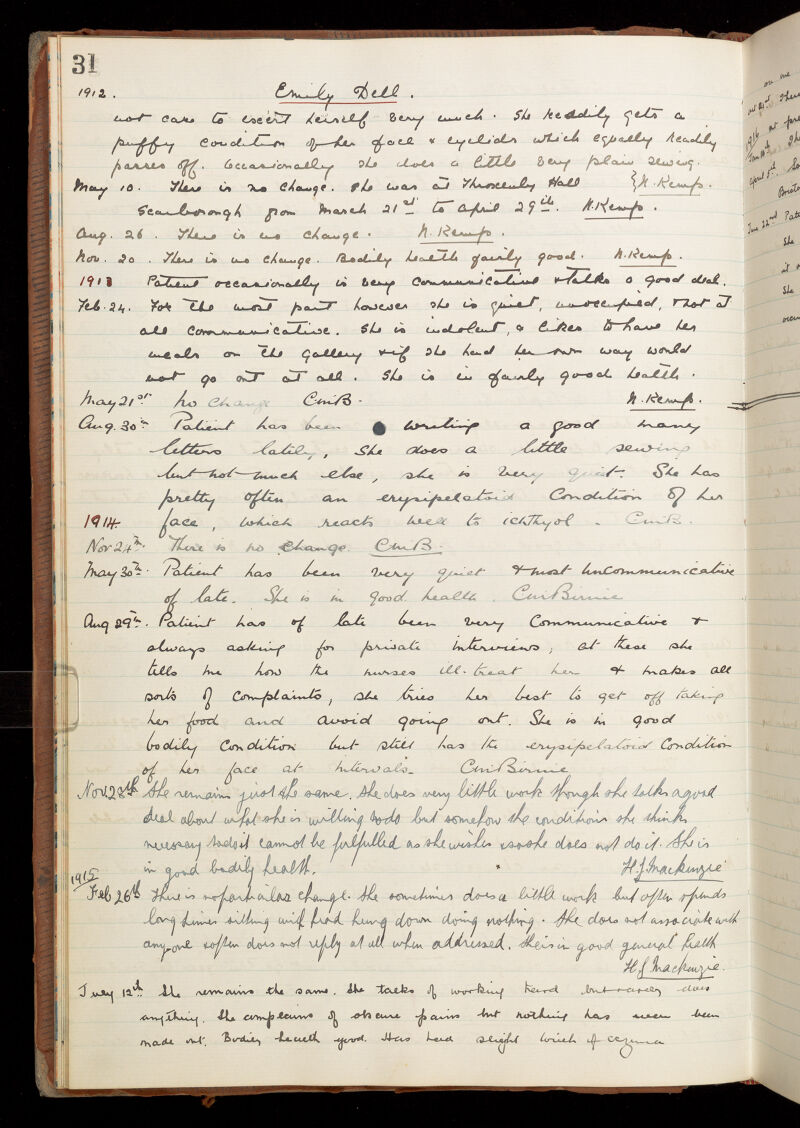 31
1912.
Emily Dell.
not care to exert herself very much. She readily gets a
puffy condition of her face & eyelids which equally readily
passes off. Occasionally she does a little very plain sewing.
May 10. There is no change. She was at Throxenby Hall } N. Kemp.
Scarborough from March 21st to April 29th. N. Kemp.
Aug. 26. There is no change. N. Kemp.
Nov. 20. There is no change. Bodily health fairly good. N. Kemp.
1913 Patient occasionally is very communicative & talks a good deal.
Feb. 24. For the most part however she is quiet, unoccupied, & not at
all communicative. She is indolent, & likes to have her
meals on the gallery & if she had her own way would
not go out at all. She is in fairly good health.
May 21st No change CmB. N. Kemp.
Aug. 30th Patient has been writing a good many
letters lately, She does a little sewing
but not much else, she is very quiet. She has
pretty often an erysipelatoid condition of her
1914. face, which reacts well to ichthyol. CmB.
Nov 24th. There is no change. CmB.
May 30th. Patient has been very quiet & most uncommunicative
of late. She is in good health. CmBirnie
Aug 29th. Patient has of late been very communicative &
always asking for private interviews, at these she
tells me how the nurses ill-treat her & makes all
sorts of complaints, she tries her best to get off taking
her food and avoid going out. She is in good
bodily condition but still has the erysipelatoid condition
of her face at intervals. CmBirnie
Nov 28th She remains just the same. She does very little work though she talks a good
deal about what she is willing to do but somehow the conditions she thinks
necessary to do it cannot be fulfilled as she wishes & so she does not do it. She is
in good bodily health. H.J. Mackenzie
1915
Feb 26th There is no particular change. She sometimes does a little work but often spends
long times sitting with head hung down doing nothing. She does not associate with
any-one & often does not reply at all when addressed. She is in good general health
H.J. Mackenzie.
July 12th. She remains the same. She talks of working hard but rarely does
anything. She complains of obscure pains but nothing has ever been
made out. Bodily health good. Has had slight of eczema